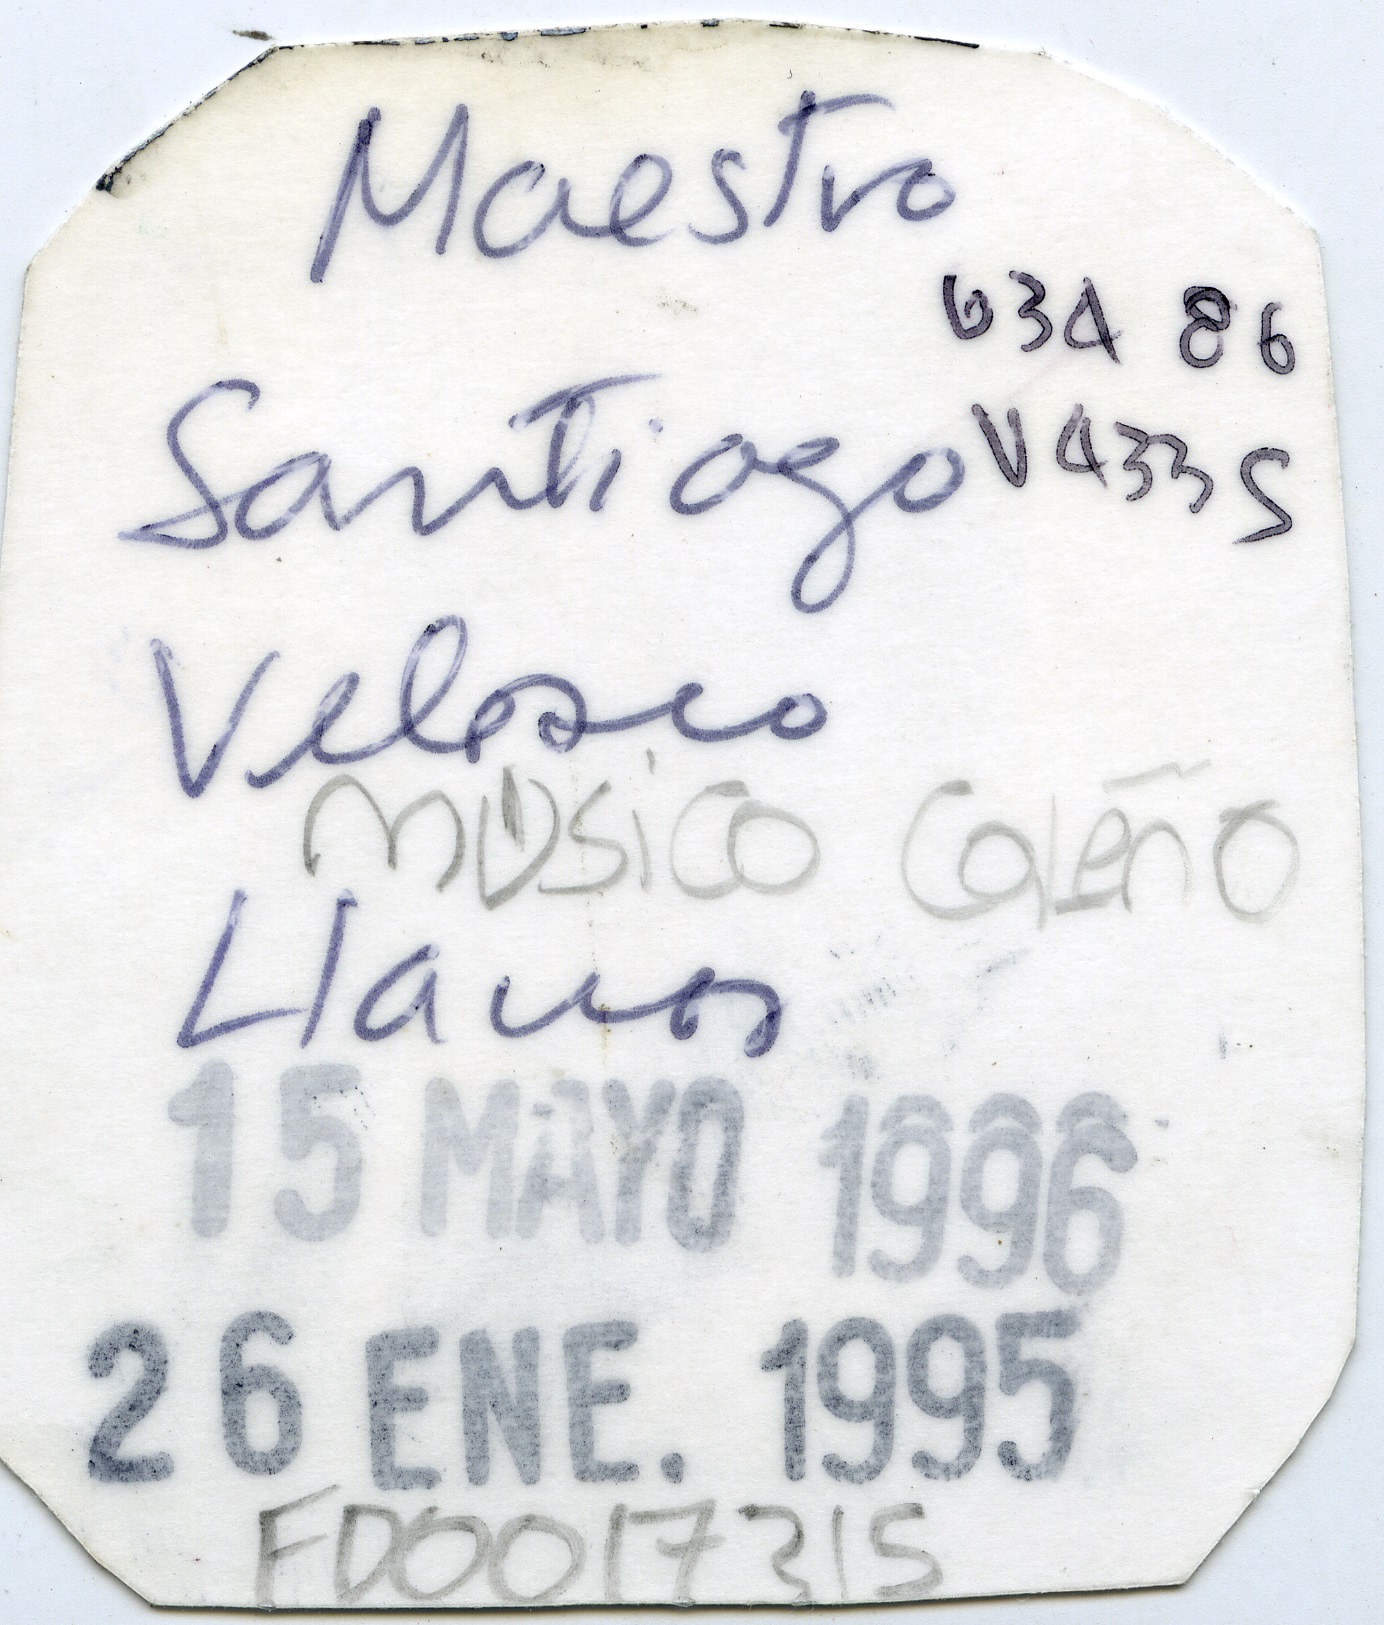 Maestro
634 86
Santiago
V433S
Velasco
MUSICO CALEÑO
Llanos
15 MAYO 1996
26 ENE. 1995
FD0017315